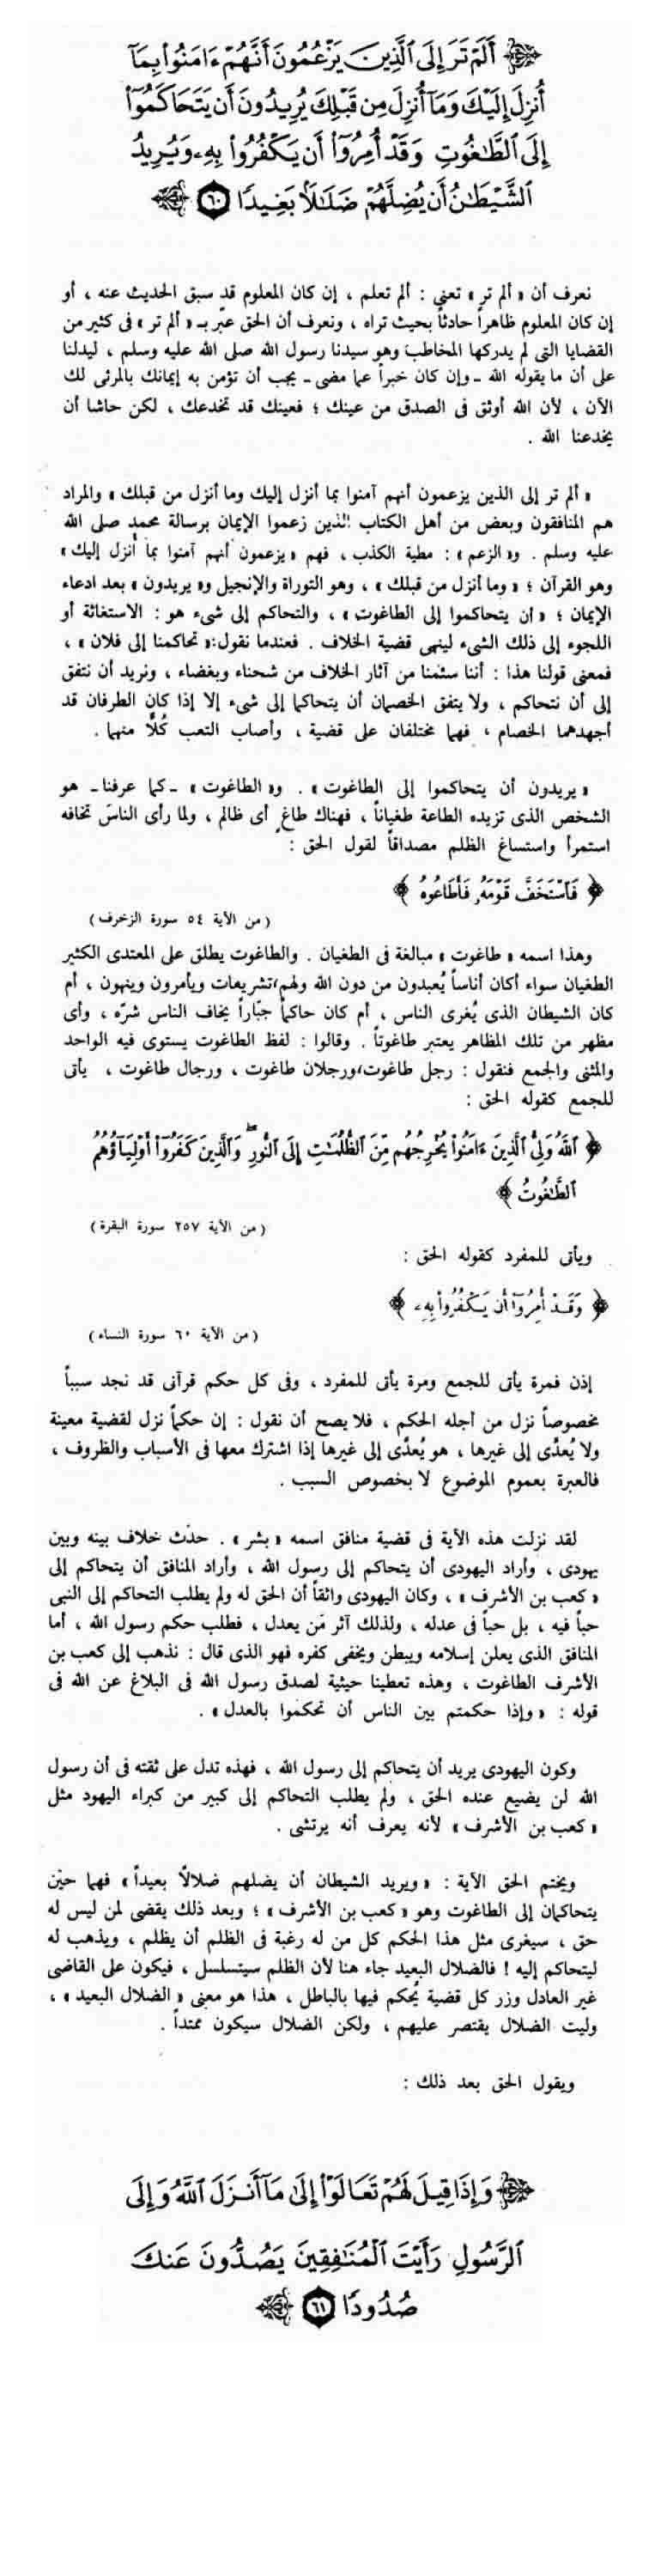 أَلَمْ تَرَ إِلَى ٱلَّذِينَ يَزْعُمُونَ أَنَّهُمْ ءَامَنُوا۟ بِمَآ
أُنزِلَ إِلَيْكَ وَمَآ أُنزِلَ مِن قَبْلِكَ يُرِيدُونَ أَن يَتَحَاكَمُوٓا۟
إِلَى ٱلطَّٰغُوتِ وَقَدْ أُمِرُوٓا۟ أَن يَكْفُرُوا۟ بِهِۦ وَيُرِيدُ
ٱلشَّيْطَٰنُ أَن يُضِلَّهُمْ ضَلَٰلًۢا بَعِيدًا ٦٠
نعرف أن « ألم تر » تعنى : ألم تعلم ، إن كان المعلوم قد سبق الحديث عنه ، أو
إن كان المعلوم ظاهراً حادثاً بحيث تراه ، ونعرف أن الحق عبّر بـ « ألم تر » فى كثير من
القضايا التى لم يدركها المخاطب وهو سيدنا رسول الله صلى الله عليه وسلم ، ليدلنا
على أن ما يقوله الله - وإن كان خبراً عما مضى - يجب أن تؤمن به إيمانك بالمرئى لك
الآن ، لأن الله أوثق فى الصدق من عينك ؛ فعينك قد تخدعك ، لكن حاشا أن
يخدعنا الله .
« ألم تر إلى الذين يزعمون أنهم آمنوا بما أنزل إليك وما أنزل من قبلك » والمراد
هم المنافقون وبعض من أهل الكتاب الذين زعموا الإيمان برسالة محمد صلى الله
عليه وسلم . و« الزعم » : مطية الكذب ، فهم « يزعمون أنهم آمنوا بما أنزل إليك »
وهو القرآن ؛ « وما أنزل من قبلك » ، وهو التوراة والإنجيل و« يريدون » بعد ادعاء
الإيمان ؛ « أن يتحاكموا إلى الطاغوت » ، والتحاكم إلى شىء هو : الاستغاثة أو
اللجوء إلى ذلك الشىء لينهى قضية الخلاف . فعندما نقول : « تحاكمنا إلى فلان » ،
فمعنى قولنا هذا : أننا سئمنا من آثار الخلاف من شحناء وبغضاء ، ونريد أن نتفق
إلى أن نتحاكم ، ولا يتفق الخصمان أن يتحاكما إلى شىء إلا إذا كان الطرفان قد
أجهدهما الخصام ، فهما مختلفان على قضية ، وأصاب التعب كُلًّا منهما .
« يريدون أن يتحاكموا إلى الطاغوت » . و« الطاغوت » - كما عرفنا - هو
الشخص الذى تزيده الطاعة طغياناً ، فهناك طاغٍ أى ظالم ، ولما رأى الناسَ تخافه
استمرأ واستساغ الظلم مصداقاً لقول الحق :
﴿ فَٱسْتَخَفَّ قَوْمَهُۥ فَأَطَاعُوهُ ﴾
( من الآية ٥٤ سورة الزخرف )
وهذا اسمه « طاغوت » مبالغة فى الطغيان . والطاغوت يطلق على المعتدى الكثير
الطغيان سواء أكان أناساً يُعبدون من دون الله ولهم تشريعات ويأمرون وينهون ، أم
كان الشيطان الذى يُغرى الناس ، أم كان حاكماً جبّاراً يخاف الناس شرّه ، وأى
مظهر من تلك المظاهر يعتبر طاغوتاً . وقالوا : لفظ الطاغوت يستوى فيه الواحد
والمثنى والجمع فنقول : رجل طاغوت ، ورجلان طاغوت ، ورجال طاغوت ، يأتى
للجمع كقوله الحق :
﴿ ٱللَّهُ وَلِىُّ ٱلَّذِينَ ءَامَنُوا۟ يُخْرِجُهُم مِّنَ ٱلظُّلُمَٰتِ إِلَى ٱلنُّورِ ۖ وَٱلَّذِينَ كَفَرُوٓا۟ أَوْلِيَآؤُهُمُ
ٱلطَّٰغُوتُ ﴾
( من الآية ٢٥٧ سورة البقرة )
ويأتى للمفرد كقوله الحق :
﴿ وَقَدْ أُمِرُوٓا۟ أَن يَكْفُرُوا۟ بِهِۦ ﴾
( من الآية ٦٠ سورة النساء )
إذن فمرة يأتى للجمع ومرة يأتى للمفرد ، وفى كل حكم قرآنى قد نجد سبباً
مخصوصاً نزل من أجله الحكم ، فلا يصح أن نقول : إن حكماً نزل لقضية معينة
ولا يُعدَّى إلى غيرها ، هو يُعدَّى إلى غيرها إذا اشترك معها فى الأسباب والظروف ،
فالعبرة بعموم الموضوع لا بخصوص السبب .
لقد نزلت هذه الآية فى قضية منافق اسمه « بشر » . حدث خلاف بينه وبين
يهودى ، وأراد اليهودى أن يتحاكم إلى رسول الله ، وأراد المنافق أن يتحاكم إلى
« كعب بن الأشرف » ، وكان اليهودى واثقاً أن الحق له ولم يطلب التحاكم إلى النبى
حباً فيه ، بل حباً فى عدله ، ولذلك آثر مَن يعدل ، فطلب حكم رسول الله ، أما
المنافق الذى يعلن إسلامه ويبطن ويخفى كفره فهو الذى قال : نذهب إلى كعب بن
الأشرف الطاغوت ، وهذه تعطينا حيثية لصدق رسول الله فى البلاغ عن الله فى
قوله : « وإذا حكمتم بين الناس أن تحكموا بالعدل » .
وكون اليهودى يريد أن يتحاكم إلى رسول الله ، فهذه تدل على ثقته فى أن رسول
الله لن يضيع عنده الحق ، ولم يطلب التحاكم إلى كبير من كبراء اليهود مثل
« كعب بن الأشرف » لأنه يعرف أنه يرتشى .
ويختم الحق الآية : « ويريد الشيطان أن يضلهم ضلالاً بعيداً » فهما حين
يتحاكمان إلى الطاغوت وهو « كعب بن الأشرف » ؛ وبعد ذلك يقضى لمن ليس له
حق ، سيغرى مثل هذا الحكم كل من له رغبة فى الظلم أن يظلم ، ويذهب له
ليتحاكم إليه ! فالضلال البعيد جاء هنا لأن الظلم سيتسلسل ، فيكون على القاضى
غير العادل وزر كل قضية يُحكم فيها بالباطل ، هذا هو معنى « الضلال البعيد » ،
وليت الضلال يقتصر عليهم ، ولكن الضلال سيكون ممتداً .
ويقول الحق بعد ذلك :
وَإِذَا قِيلَ لَهُمْ تَعَالَوْا۟ إِلَىٰ مَآ أَنزَلَ ٱللَّهُ وَإِلَى
ٱلرَّسُولِ رَأَيْتَ ٱلْمُنَٰفِقِينَ يَصُدُّونَ عَنكَ
صُدُودًا ٦١